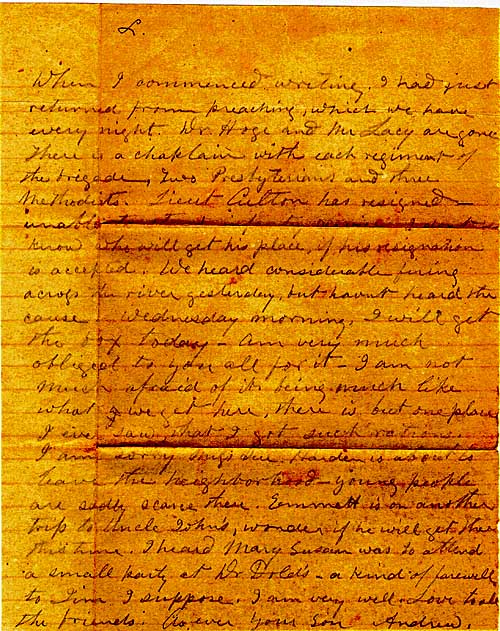 2.
When I commenced writing. I had just
returned from preaching, which we have
every night. Dr Hoge and Mr Lacy are gone
There is a chaplain with each regiment of
the brigade, two Presbyterians and three
Methodists. Lieut Culton has resigned -
unable
know who will get his place, if his resignation
is accepted. We heard considerable firing
across the river yesterday, but havnt heard the
cause - Wednesday morning, I will get
the box today - Am very much
obliged to you all for it - I am not
much afraid of its being much like
what we get here, there is but one place
I ever saw that I got such rations.
I am sorry Miss Harden is about to
leave the neighborhood - young people
are sadly scarce there. Emmett is on another
trip to Uncle John's, wonder if he will get there
this time. I heard Mary Susan was to attend
a small party at Dr Dold's - a kind of farewell
to Jim I suppose. I am very well - Love to all
the friends. As ever your Son Andrew.